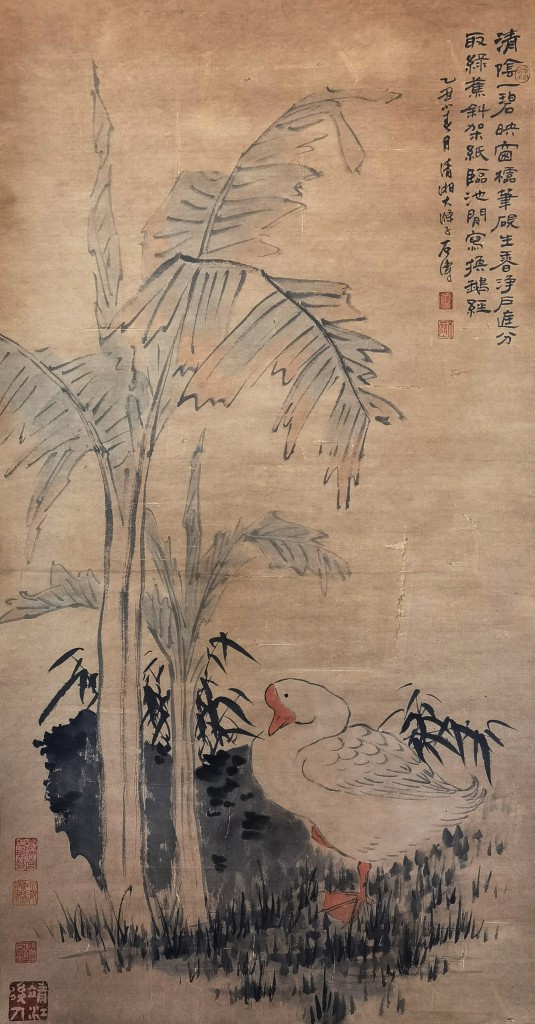 清陰一碧映窗櫺筆硯生香淨戶庭分
取綠蕉斜架紙臨池閒寫換鵝經
乙丑 月清湘大滌子石濤
靖江後人